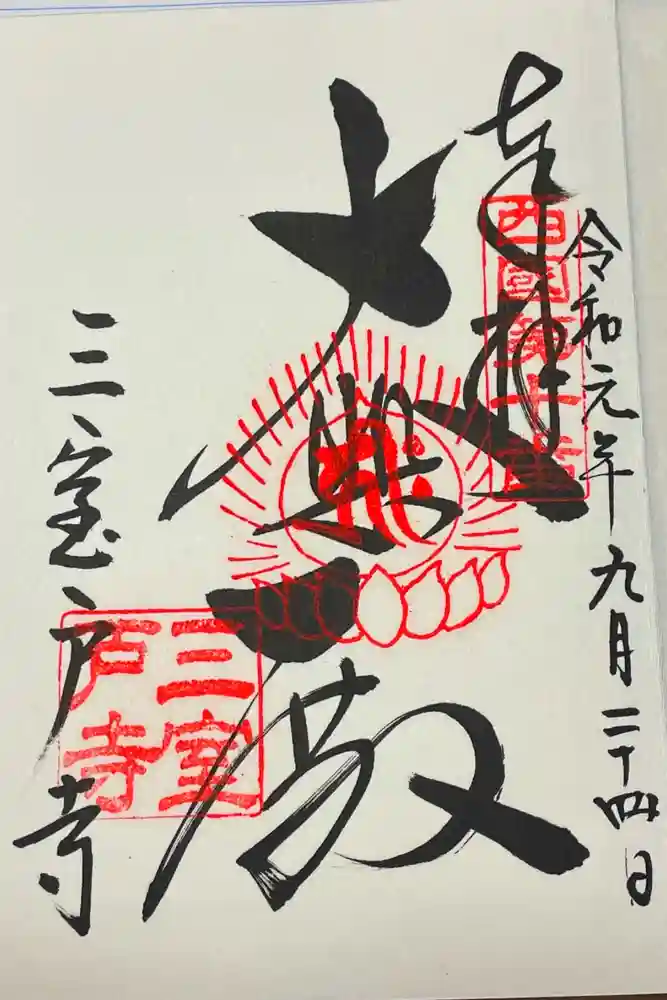 令和元年九月二十四日
奉拝
西國第十番
大悲殿
三室戸寺
三室
戸寺